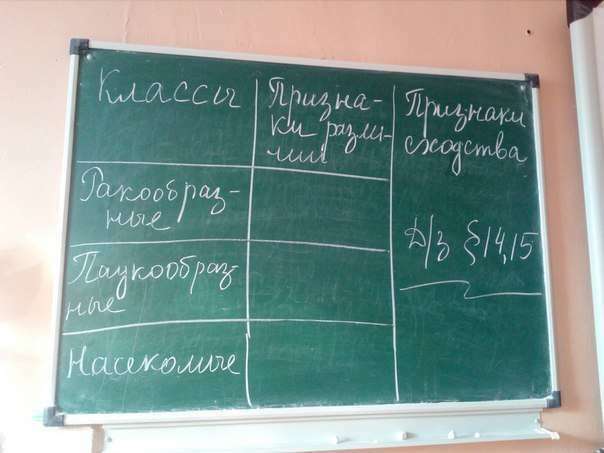 Классы
Призна-
ки разли-
чия
Признаки
сходства
Ракообраз-
ные
Паукообраз-
ные
Насекомые
Д/з §14,15